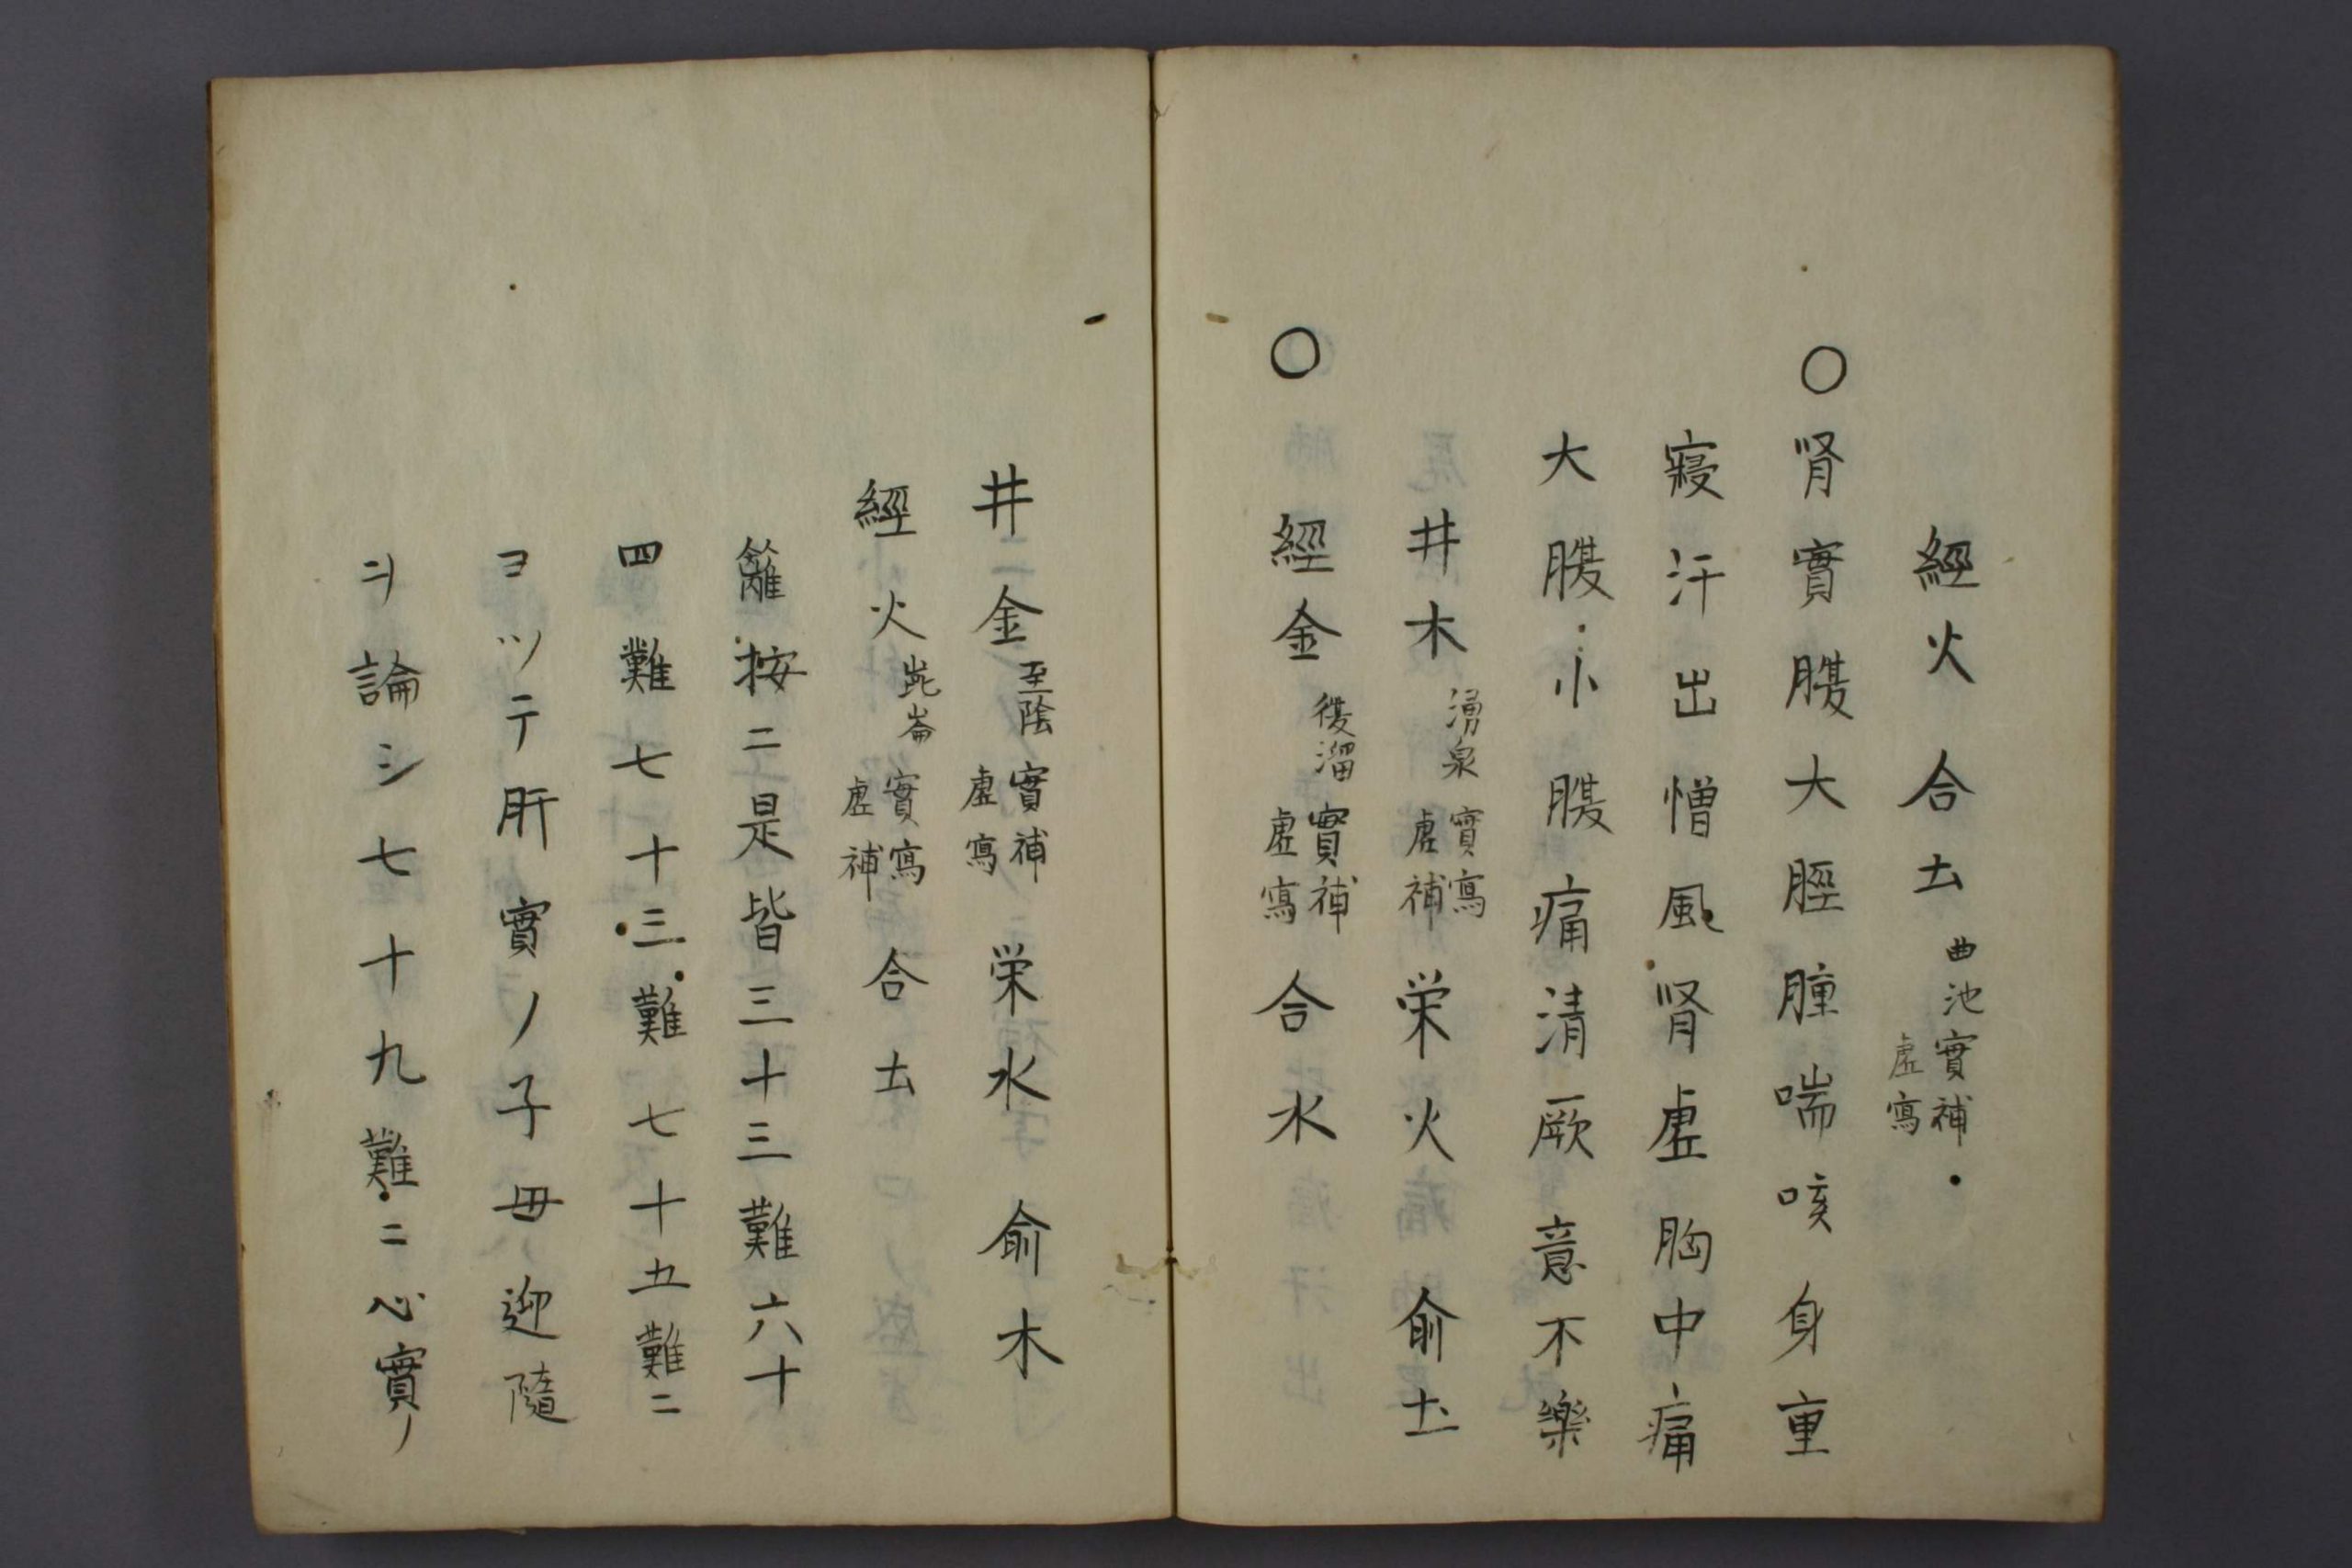 經火 合土 曲池 實補 虛寫
〇腎實腹大脛腫喘咳身重
寢汗出憎風腎虛胸中痛
大腹小腹痛清厥意不樂
井木 湧泉 實寫 虛補 栄火 俞土
〇 經金 復溜 實補 虛寫 合水
井金 至陰 實補 虛寫 栄水 俞木
經火 崑崙 實寫 虛補 合土
籬按ニ是皆三十三難六十
四難七十三難七十五難ニ
ヨツテ肝實ノ子母迎隨
ヲ論シ七十九難ニ心實ノ